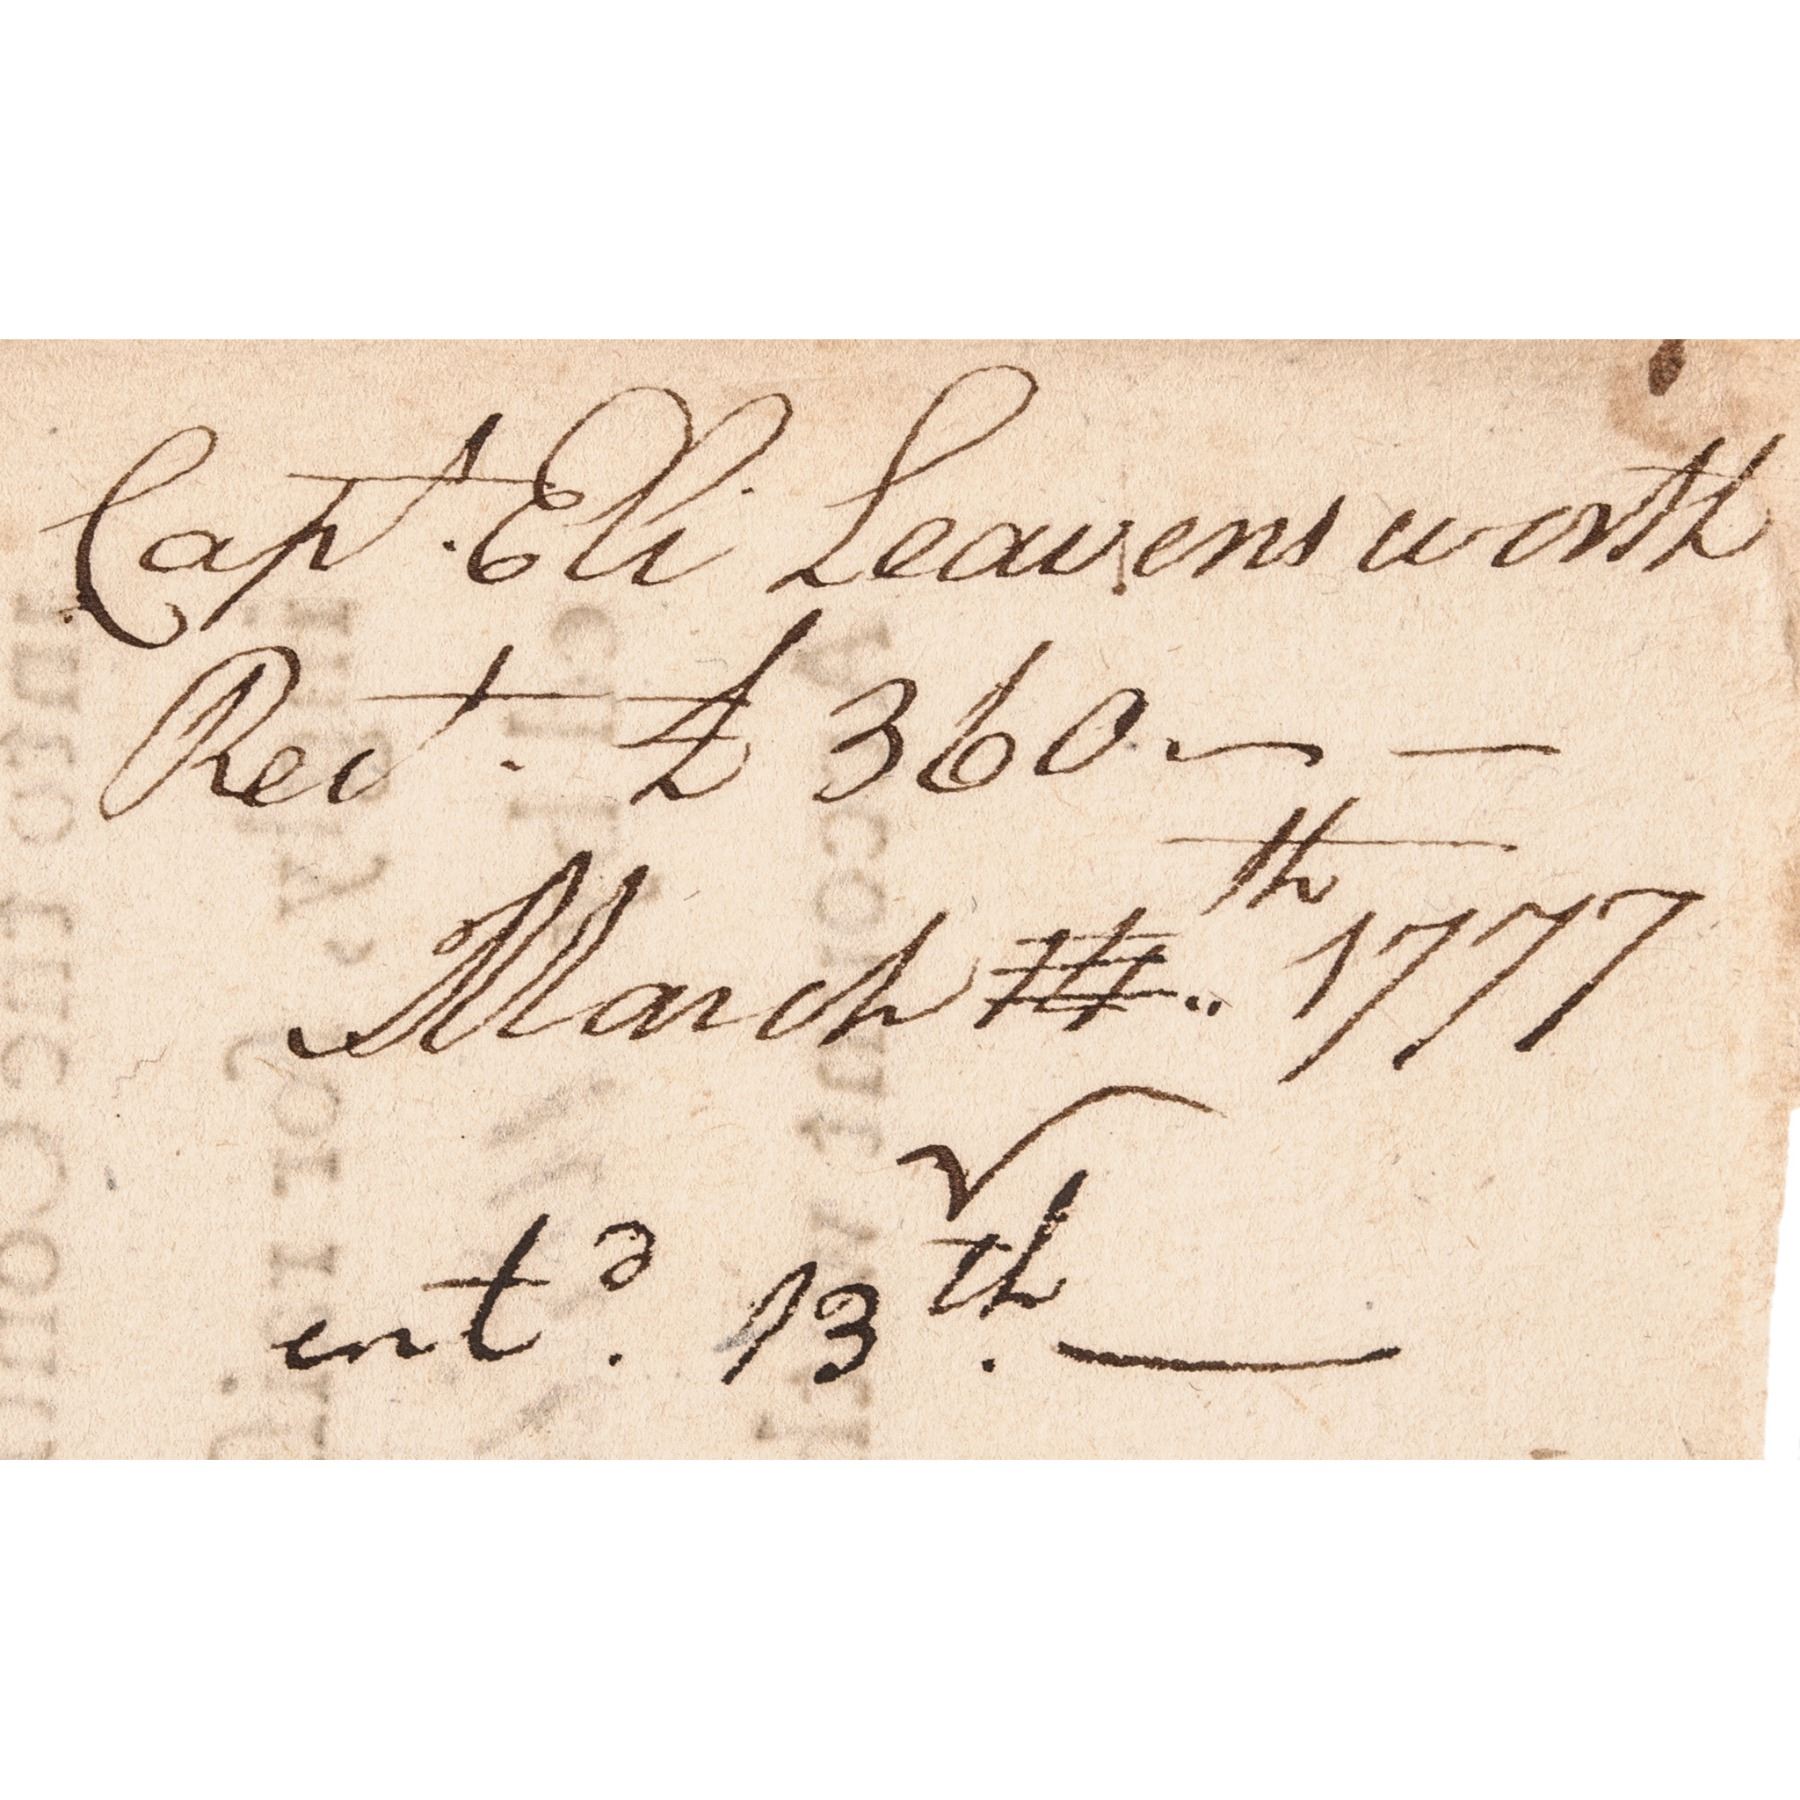 Capt. Eli Leavensworth
Rect. £ 360 — —
March th 1777
entd. 13th. —